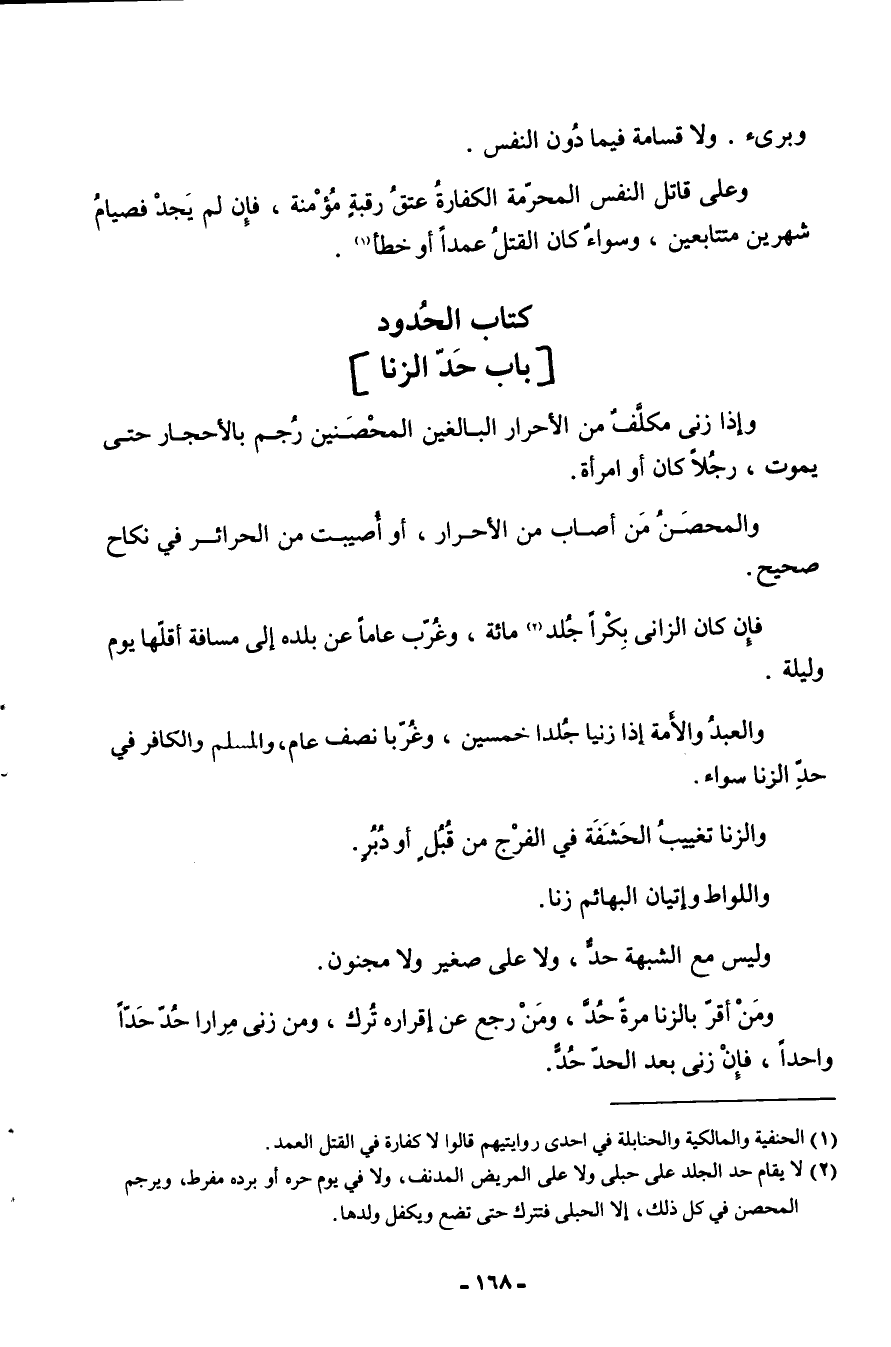 وبرىء . ولا قسامة فيما دُون النفس .
وعلى قاتل النفس المحرّمة الكفارةُ عتقُ رقبةٍ مُؤْمنة ، فإِن لم يَجدْ فصيامُ
شهرين متتابعين ، وسواءٌ كان القتلُ عمداً أو خطأ(١) .
كتاب الحُدود
[ باب حَدّ الزنا ]
وإذا زنى مكلَّفٌ من الأحرار البالغين المحْصَنين رُجم بالأحجار حتى
يموت ، رجُلاً كان أو امرأة.
والمحصَنُ مَن أصاب من الأحرار ، أو أُصيبت من الحرائر في نكاح
صحيح.
فإِن كان الزانى بِكْراً جُلد(٢) مائة ، وغُرّب عاماً عن بلده إلى مسافة أقلّها يوم
وليلة .
والعبدُ والأَمة إذا زنيا جُلدا خمسين ، وغُرّبا نصف عام، والمسلم والكافر في
حدِّ الزنا سواء.
والزنا تغييبُ الحَشَفَة في الفرْج من قُبُلٍ أو دُبُرٍ.
واللواط وإتيان البهائم زنا.
وليس مع الشبهة حدٌّ ، ولا على صغير ولا مجنون.
ومَنْ أقرّ بالزنا مرةً حُدَّ ، ومَنْ رجع عن إقراره تُرك ، ومن زنى مِرارا حُدّ حَدّاً
واحداً ، فإِنْ زنى بعد الحدّ حُدَّ.
(١) الحنفية والمالكية والحنابلة في احدى روايتيهم قالوا لا كفارة في القتل العمد.
(٢) لا يقام حد الجلد على حبلى ولا على المريض المدنف، ولا في يوم حره أو برده مفرط، ويرجم
المحصن في كل ذلك، إلا الحبلى فتترك حتى تضع ويكفل ولدها.
- ١٦٨ -